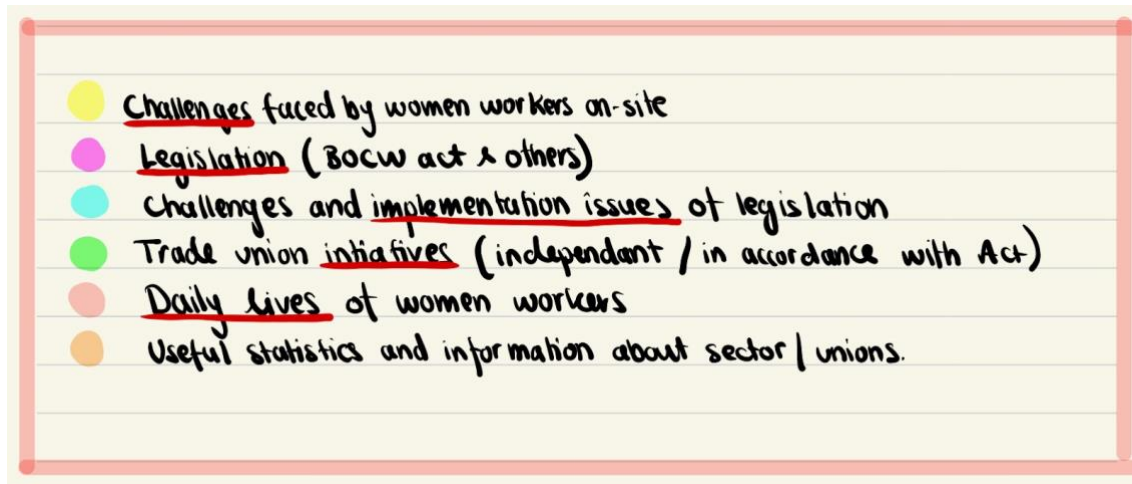 Challenges faced by women workers on-site
Legislation (BOCW act & others)
Challenges and implementation issues of legislation
Trade union intiatives (independant / in accordance with Act)
Daily lives of women workers
Useful statistics and information about sector / unions.